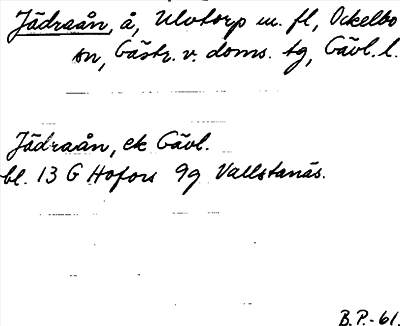 Jädraån, å, Ulvtorp m. fl, Ockelbo
sn, Gästr. v. doms. tg, Gävl. l.
Jädraån, ek Gävl.
bl. 13 G Hofors 9g Vallstanäs.
B.P.-61.